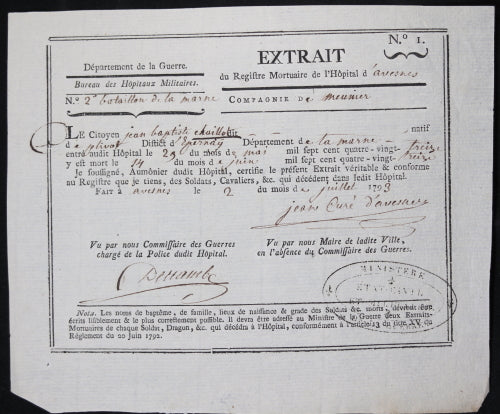 N.º 1.
Département de la Guerre.
Bureau des Hôpitaux Militaires.
N.º 2e bataillon de la marne
EXTRAIT
du Regiſtre Mortuaire de l'Hôpital d'avesnes
COMPAGNIE De meunier
LE Citoyen jean baptiste natif
de plivot Diſtict d'Epernay Département de la marne
entré audit Hôpital le 29 du mois de mai mil ſept cent quatre-vingt-treize
y eſt mort le 14 du mois de juin mil ſept cent quatre-vingt-treize
Je ſouſſigné, Aumônier dudit Hôpital, certifie le préſent Extrait véritable & conforme
au Regiſtre que je tiens, des Soldats, Cavaliers, &c. qui décèdent dans ledit Hôpital.
FAIT à avesnes le 2 du mois de juillet 1793
jean Curé d'avesnes
Vu par nous Commiſſaire des Guerres
chargé de la Police dudit Hôpital.
Vu par nous Maire de ladite Ville,
en l'abſence du Commiſſaire des Guerres.
MINISTERE
ETAT CIVIL
Nota. Les noms de baptême, de famille, lieux de naiſſance & grade des Sujets &c. morts, devront être
écrits liſiblement & le plus correctement poſſible. Il devra être adreſſé au Miniſtre de la Guerre deux Extraits-
Mortuaires de chaque Soldat, Dragon, &c. qui décédra à l'Hôpital, conformément à l'article 13 du titre XV du
Règlement du 20 Juin 1792.